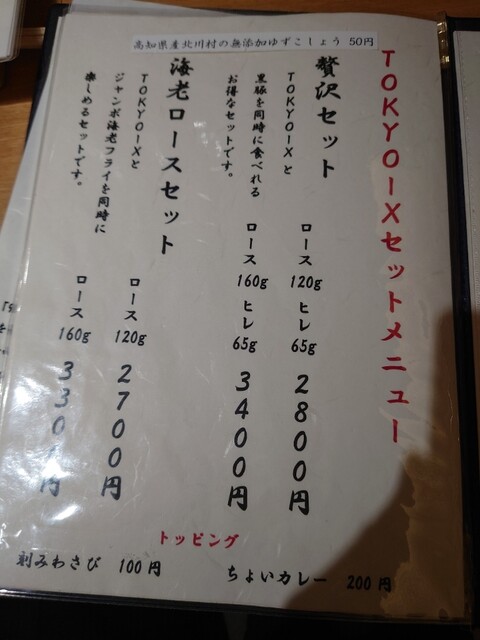 高知県産北川村の無添加ゆずこしょう 50円
TOKYOIXセットメニュー
贅沢セット
TOKYOIXと
黒豚を同時に食べれる
お得なセットです。
ロース120g ヒレ65g 2800円
ロース160g ヒレ65g 3400円
海老ロースセット
TOKYOIXと
ジャンボ海老フライを同時に
楽しめるセットです。
ロース120g 2700円
ロース160g 3300円
トッピング
ちょいカレー 200円
刻みわさび 100円